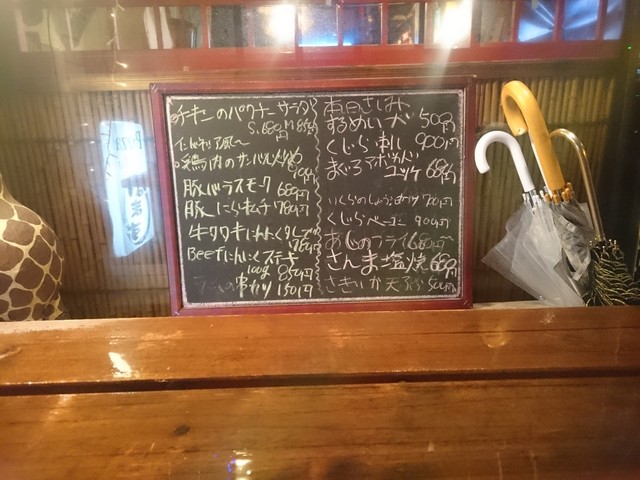 チキンのパクチーサラダ
S.680円 M
鶏肉のサンバル
豚バラスモーク 680円
豚にらキムチ 780円
牛タタキにんにく
780円
Beefにんにくステーキ
100g 850円
串カツ 150円
本日さしみ
するめいか 500円
くじら刺し 900円
まぐろアボカド
ユッケ 680円
いくらのしょうゆづけ 700円
くじらベーコン 900円
あじのフライ 680円
さんま塩焼 680円
さきいか天ぷら 500円